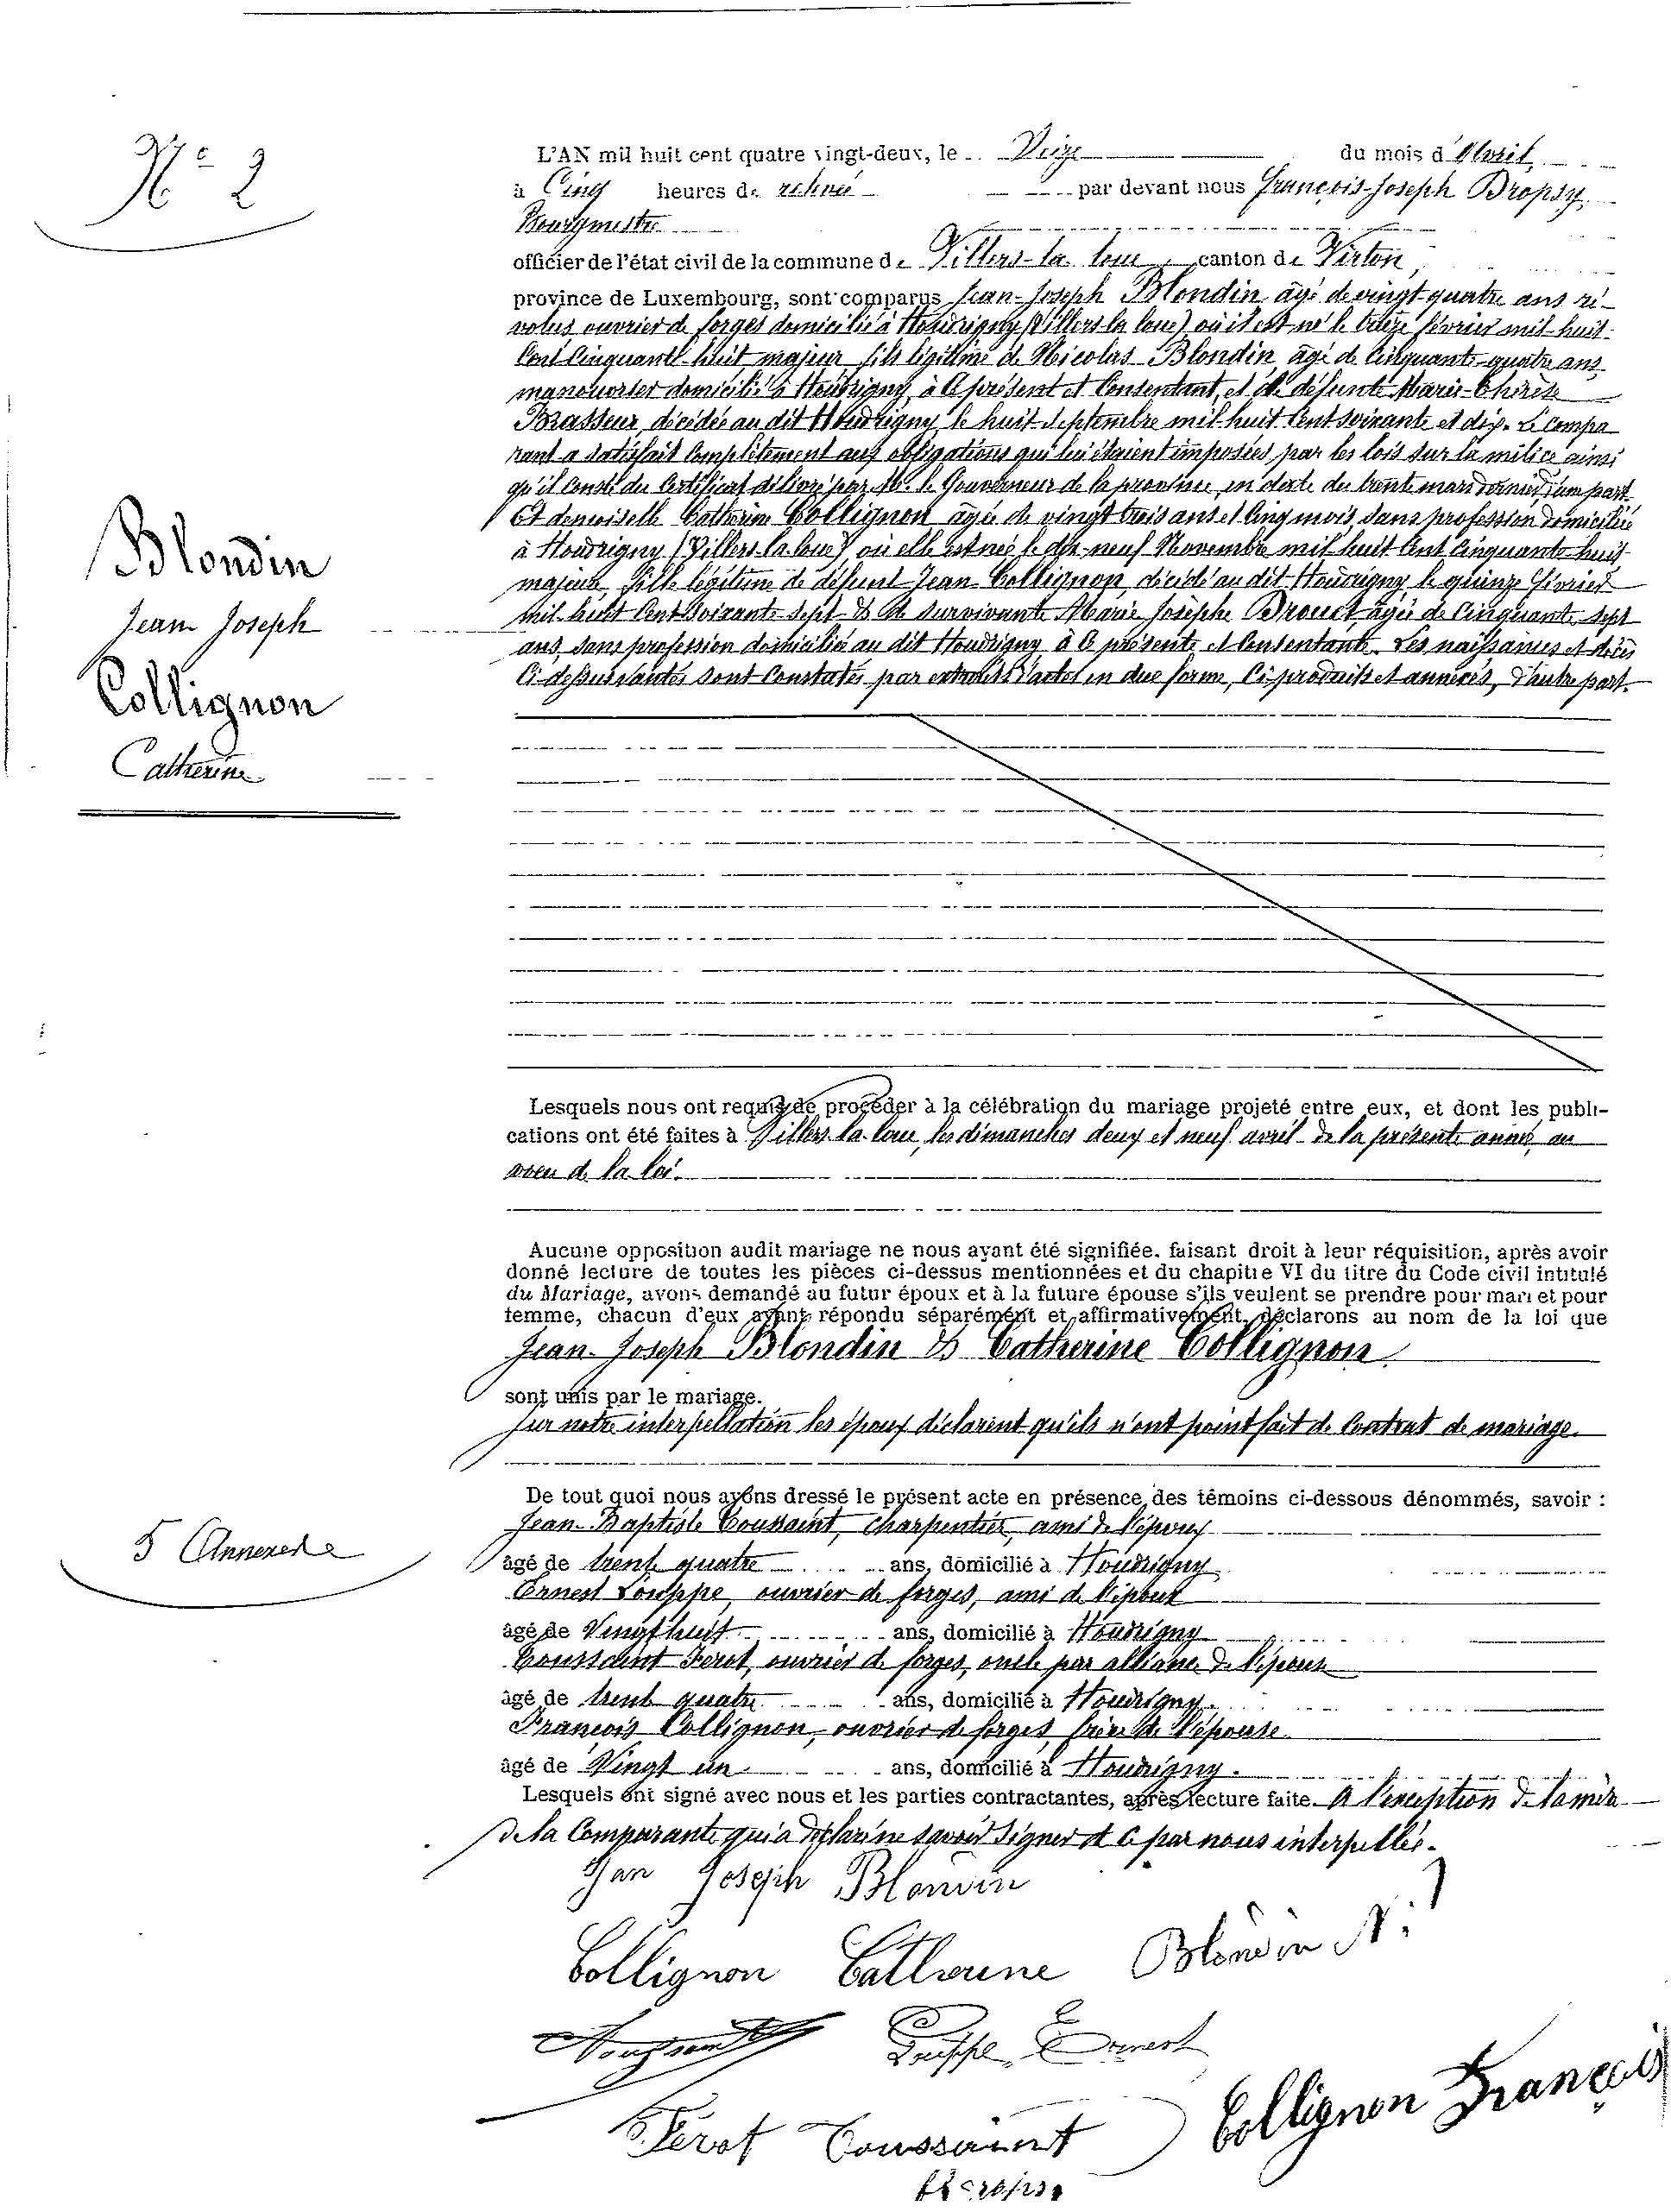 N° 2
L'AN mil huit cent quatre vingt-deux, le Seize du mois d'Avril,
à Cinq heures de relevée par devant nous François-Joseph Dropsy,
Bourgmestre
officier de l'état civil de la commune de Villers-la-loue, canton de Virton,
province de Luxembourg, sont comparus Jean-Joseph Blondin âgé de vingt-quatre ans ré-
volus ouvrier de forges domicilié à Houdrigny (Villers-la-loue) où il est né le treize février mil-huit-
Cent Cinquante-huit, majeur, fils légitime de Nicolas Blondin âgé de Cinquante-quatre ans
manouvrier domicilié à Houdrigny, à ce présent et Consentant, et de défunte Marie-Thérèse
Brasseur, décédée au dit Houdrigny le huit Septembre mil-huit Cent soixante et dix. Le Compa
rant a satisfait Complètement aux obligations qui lui étaient imposées par les lois sur la milice ainsi
qu'il Conste du Certificat délivré par M. le Gouverneur de la province, en date du trente mars dernier d'une part.
Et demoiselle Catherine Collignon âgée de vingt trois ans et Cinq mois, sans profession domiciliée
à Houdrigny (Villers-la-loue) où elle est née le dix-neuf Novembre mil huit Cent Cinquante huit
majeure, fille légitime de défunt Jean Collignon, décédé au dit Houdrigny le quinze février
mil-huit Cent Soixante-sept & de survivante Marie Josèphe Drouet âgée de Cinquante-sept
ans, sans profession domiciliée au dit Houdrigny à ce présente et Consentante. Les naissances et décès
Ci-dessus vantés sont Constatés par extraits d'actes en due forme, Ci-produits et annexés, d'autre part.
Blondin
Jean Joseph
Collignon
Catherine
Lesquels nous ont requis de procéder à la célébration du mariage projeté entre eux, et dont les publi-
cations ont été faites à Villers-la-loue, les dimanches deux et neuf avril de la présente année, au
voeu de la loi.
Aucune opposition audit mariage ne nous ayant été signifiée, faisant droit à leur réquisition, après avoir
donné lecture de toutes les pièces ci-dessus mentionnées et du chapitre VI du titre du Code civil intitulé
du Mariage, avons demandé au futur époux et à la future épouse s'ils veulent se prendre pour mari et pour
femme, chacun d'eux ayant répondu séparément et affirmativement, déclarons au nom de la loi que
Jean-Joseph Blondin & Catherine Collignon
sont unis par le mariage.
Sur notre interpellation les époux déclarent qu'ils n'ont point fait de Contrat de mariage.
De tout quoi nous avons dressé le présent acte en présence des témoins ci-dessous dénommés, savoir :
Jean-Baptiste Toussaint, charpentier, ami de l'époux
âgé de trente quatre ans, domicilié à Houdrigny
Ernest Louppe, ouvrier de forges, ami de l'époux
âgé de Vingt huit ans, domicilié à Houdrigny
Toussaint Ferot, ouvrier de forges, oncle par alliance de l'époux
âgé de trente quatre ans, domicilié à Houdrigny.
François Collignon, ouvrier de forges, frère de l'épouse
âgé de Vingt un ans, domicilié à Houdrigny.
5 Annexes
Lesquels ont signé avec nous et les parties contractantes, après lecture faite. A l'exception de la mère
de la Comparante qui a déclaré ne savoir Signer et ce par nous interpellée.
Jan Joseph Blondin
Collignon Catherine Blondin N.
Louppe Ernest
Férot Toussaint Collignon François